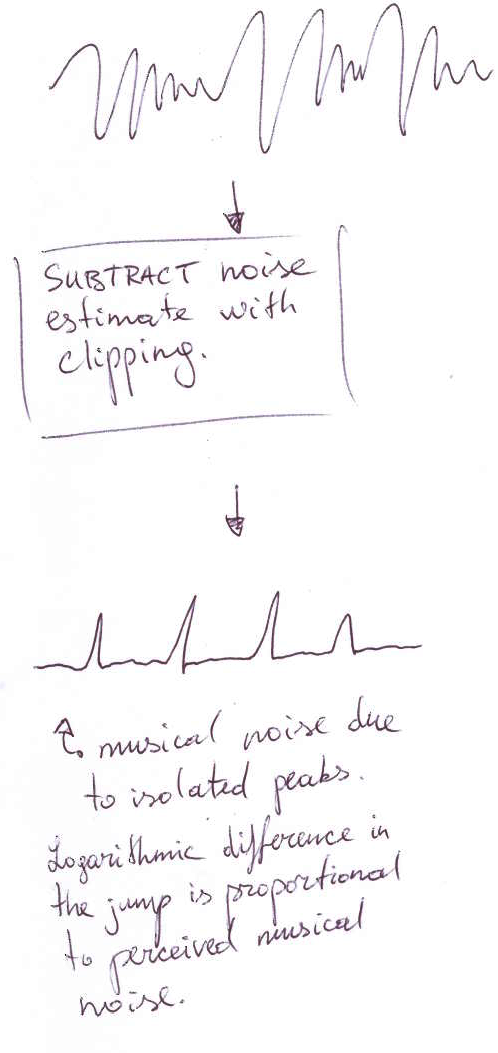 SUBTRACT noise
estimate with
clipping.
↑. musical noise due
to isolated peaks.
Logarithmic difference in
the jump is proportional
to perceived musical
noise.